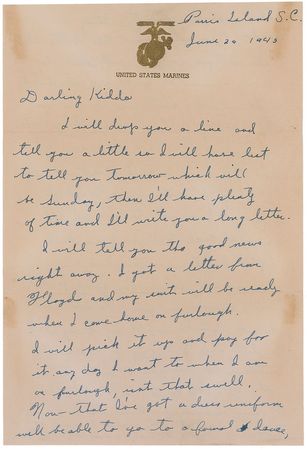 Parris Island S.C.
June 1943
UNITED STATES MARINES
Darling Kiddo
I will drop you a line and
tell you a little so I will have lest
to tell you tomorrow which will
be Sunday, then I'll have plenty
of time and I'll write you a long letter.
I will tell you the good news
right away. I got a letter from
Floyd and my suit will be ready
when I come home on furlough.
I will pick it up and pay for
it any day I want to when I am
on furlough, isnt that swell.
Now that I've got a dress uniform
well be able to go to a formal dance,